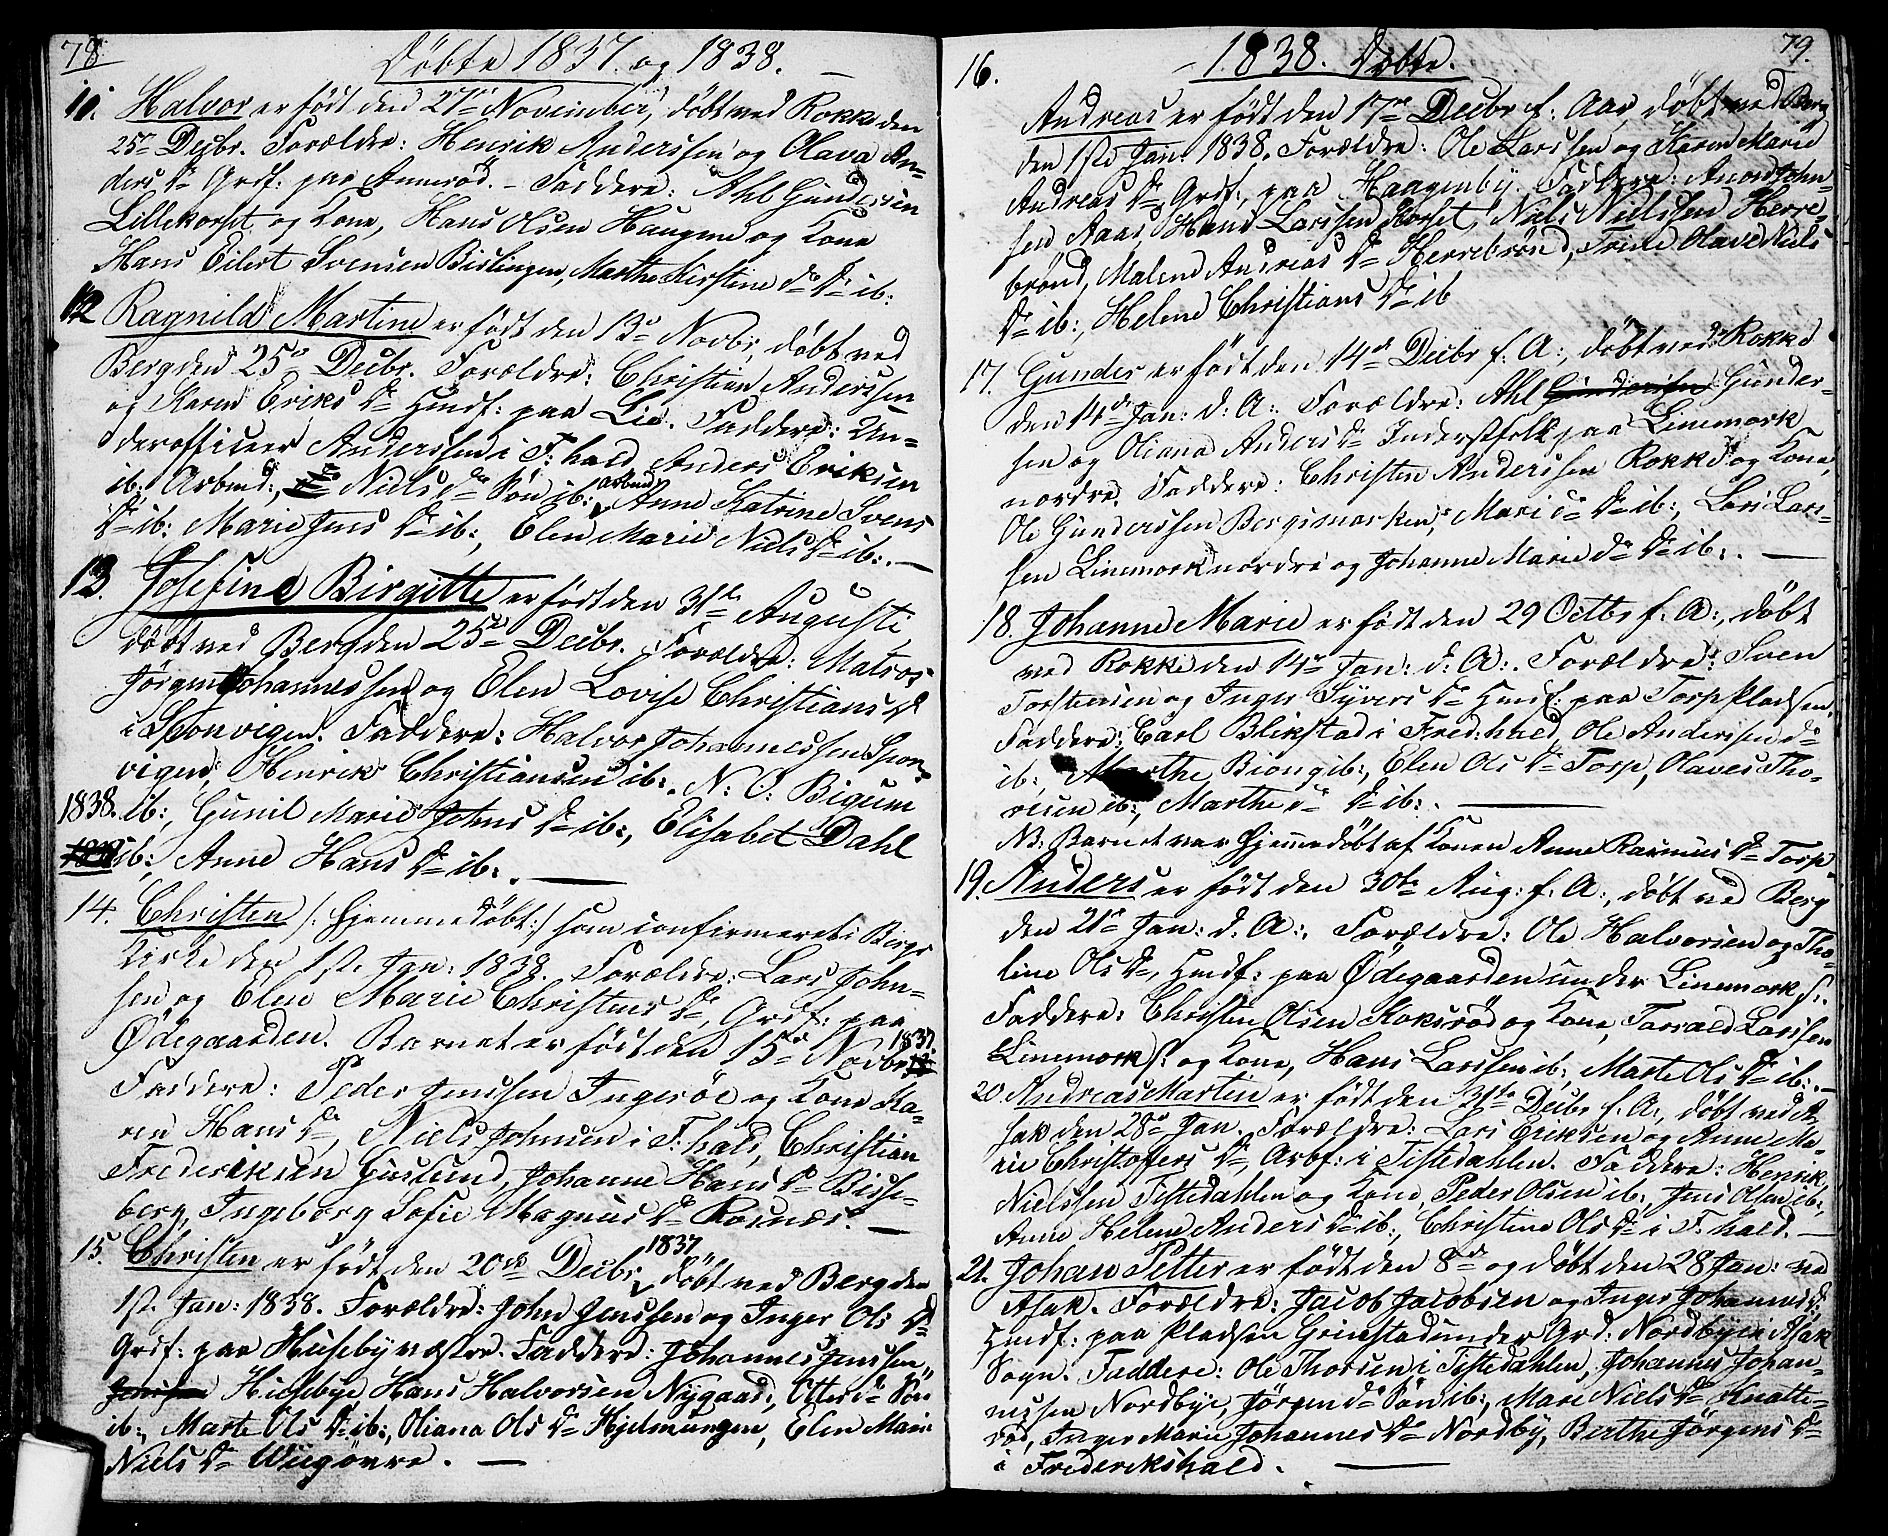 78
Döbte 1837 og 1838. —
11. Halvor er født den 27de November, døbt ved Rokke den
25de Decbr. Forældre: Henrik Anderssen og Olava An-
ders Dr Grdf: paa Annerød. — Faddere: Ahl Gundersen
Lillekorset og Kone, Hans Olsen Haugene og Kone
Hans Eilert Svensen Bislingen, Marthe Kirstine do Dr ib:
12 Ragnild Martine er født den 13de Novbr, døbt ved
Berg den 25de Decbr. Forældre: Christian Anderssen
og Karen Eriks Dr Hmdf: paa Lie. Faddere: Un-
derofficeer Anderssen i F:hald, Anders Eriksen
ib: Arbmd:, Niels do Søn ib: Arbmd, Anne Katrine Svens
Dr ib: Marie Jens Dr ib:, Elen Marie Niels Dr ib:. —
13. Josefine Birgitte er født den 31te Augusti
døbt ved Berg den 25de Decbr. Forældre: Matros
Jørgen Johannessen og Elen Lovise Christians Dr
i Sponvigen. Faddere: Halvor Johannessen Spon-
vigen, Henrik Christiansen ib:. N: O: Bigum
1838. ib:, Gunil Marie Johns Dr ib:, Elisabet Dahl
ib:, Anne Hans Dr ib:. —
14. Christen /: hjemmedøbt :/ som confirmeredes i Bergs
Kirke den 1ste Jan: 1838. Forældre: Lars John-
sen og Elen Marie Christens Dr, Grdf: paa
Ødegaarden. Barnet er født den 15de Novbr 1837.
Faddere: Peder Jenssen Ingerøe og Kone Ka-
ren Hans Dr, Niels Johnsen i F:hald, Christian
Frederiksen Guslund, Johanne Hans Dr Bisse-
berg, Ingeborg Sofie Magnus Dr Rosnæs. —
15. Christen er født den 20de Decbr 1837, døbt ved Berg den
1st. Jan: 1838. Forældre: John Jenssen og Inger Ols Dr
Grdf: paa Huseby vestre. Faddere: Johannes Jenssen
Husebye, Hans Halvorsen Nygaard, Otter do Søn
ib:, Marte Ols Dr ib:, Oliana Ols Dr Hjelmungen, Elen Marie
Niels Dr Wiigøvre. —
79.
— 1838. Døbte.
16.
Andreas er født den 17de Decbr f: Aar, døbt ved Berg
den 1ste Jan: 1838. Forældre: Ole Larssen og Karen Marie
Andreas Dr, Grdf: paa Haagenby. Faddere: Anord John-
sen Aaas, Hans Larssen Korset, Niels Nielssen Herre-
brønd, Malene Andreas Dr Herrebrønd, Trine Olave Niels
Dr ib:, Helene Christians Dr ib
17. Gunder er født den 14de Decbr f. A:, døbt ved Rokke
den 14de Jan: d: A:. Forældre: Ahl Gunder-
sen og Oliana Anders Dr Inderstfolk paa Linemork
nordre. Faddere: Christen Anderssen Rokke og Kone,
Ole Gunderssen Bergsmarken, Mari do Dr ib:, Lars Lars-
sen Linemork nordre og Johanne Marie do Dr ib:. —
18. Johanne Marie er født den 29 Octbr f: A:, døbt
ved Rokke den 14de Jan: d: A:. Forældre: Sven
Torstensen og Inger Syvers Dr Hmdf: paa Torp Pladsen.
Faddere: Carl Blikstad i Fred:hald, Ole Anderssen do
ib:, Marthe Biong ib:, Elen Ols Dr Torp, Olaves Tho-
resen ib:, Marthe do Dr ib:. —
NB: Barnet var hjemmedøbt af Konen Anne Rasmus Dr Torp.
19. Anders er født den 30te Aug: f: A:, døbt ved Berg
den 21de Jan: d. A:. Forældre: Ole Halvorsen og Tho-
line Ols Dr, Hmdf: paa Ødegaarden under Linemork s:.
Faddere: Christen Olsen Koksrød og Kone, Torvald Larssen
Linemork s: og Kone, Hans Larssen ib:, Marte Ols Dr ib:. —
20. Andreas Martin er født den 31te Decbr f. A:, døbt ved A-
sak den 28de Jan. Forældre: Lars Eriksen og Anne Ma-
rie Christofers Dr, Arbf: i Tistedahlen. Faddere: Henrik
Nielssen Tistedahlen og Kone, Peder Olsen ib:, Jens Olsen ib:,
Anne Helene Anders Dr ib:, Christine Ols Dr i F:hald. —
21. Johan Petter er født den 8de og døbt den 28 Jan: ved
Asak. Forældre: Jacob Jacobsen og Inger Johannes Dr.
Hmdf: paa Pladsen Grimstad under Grd: Nordbye i Asak
Sogn. Faddere: Ole Thorsen i Tistedahlen, Johannes Johan-
nessen Nordbye, Jørgen do Søn ib:, Mari Niels Dr Knatte-
rød, Inger Marie Johannes Dr Nordby, Berthe Jørgens Dr
i Frederikshald. —